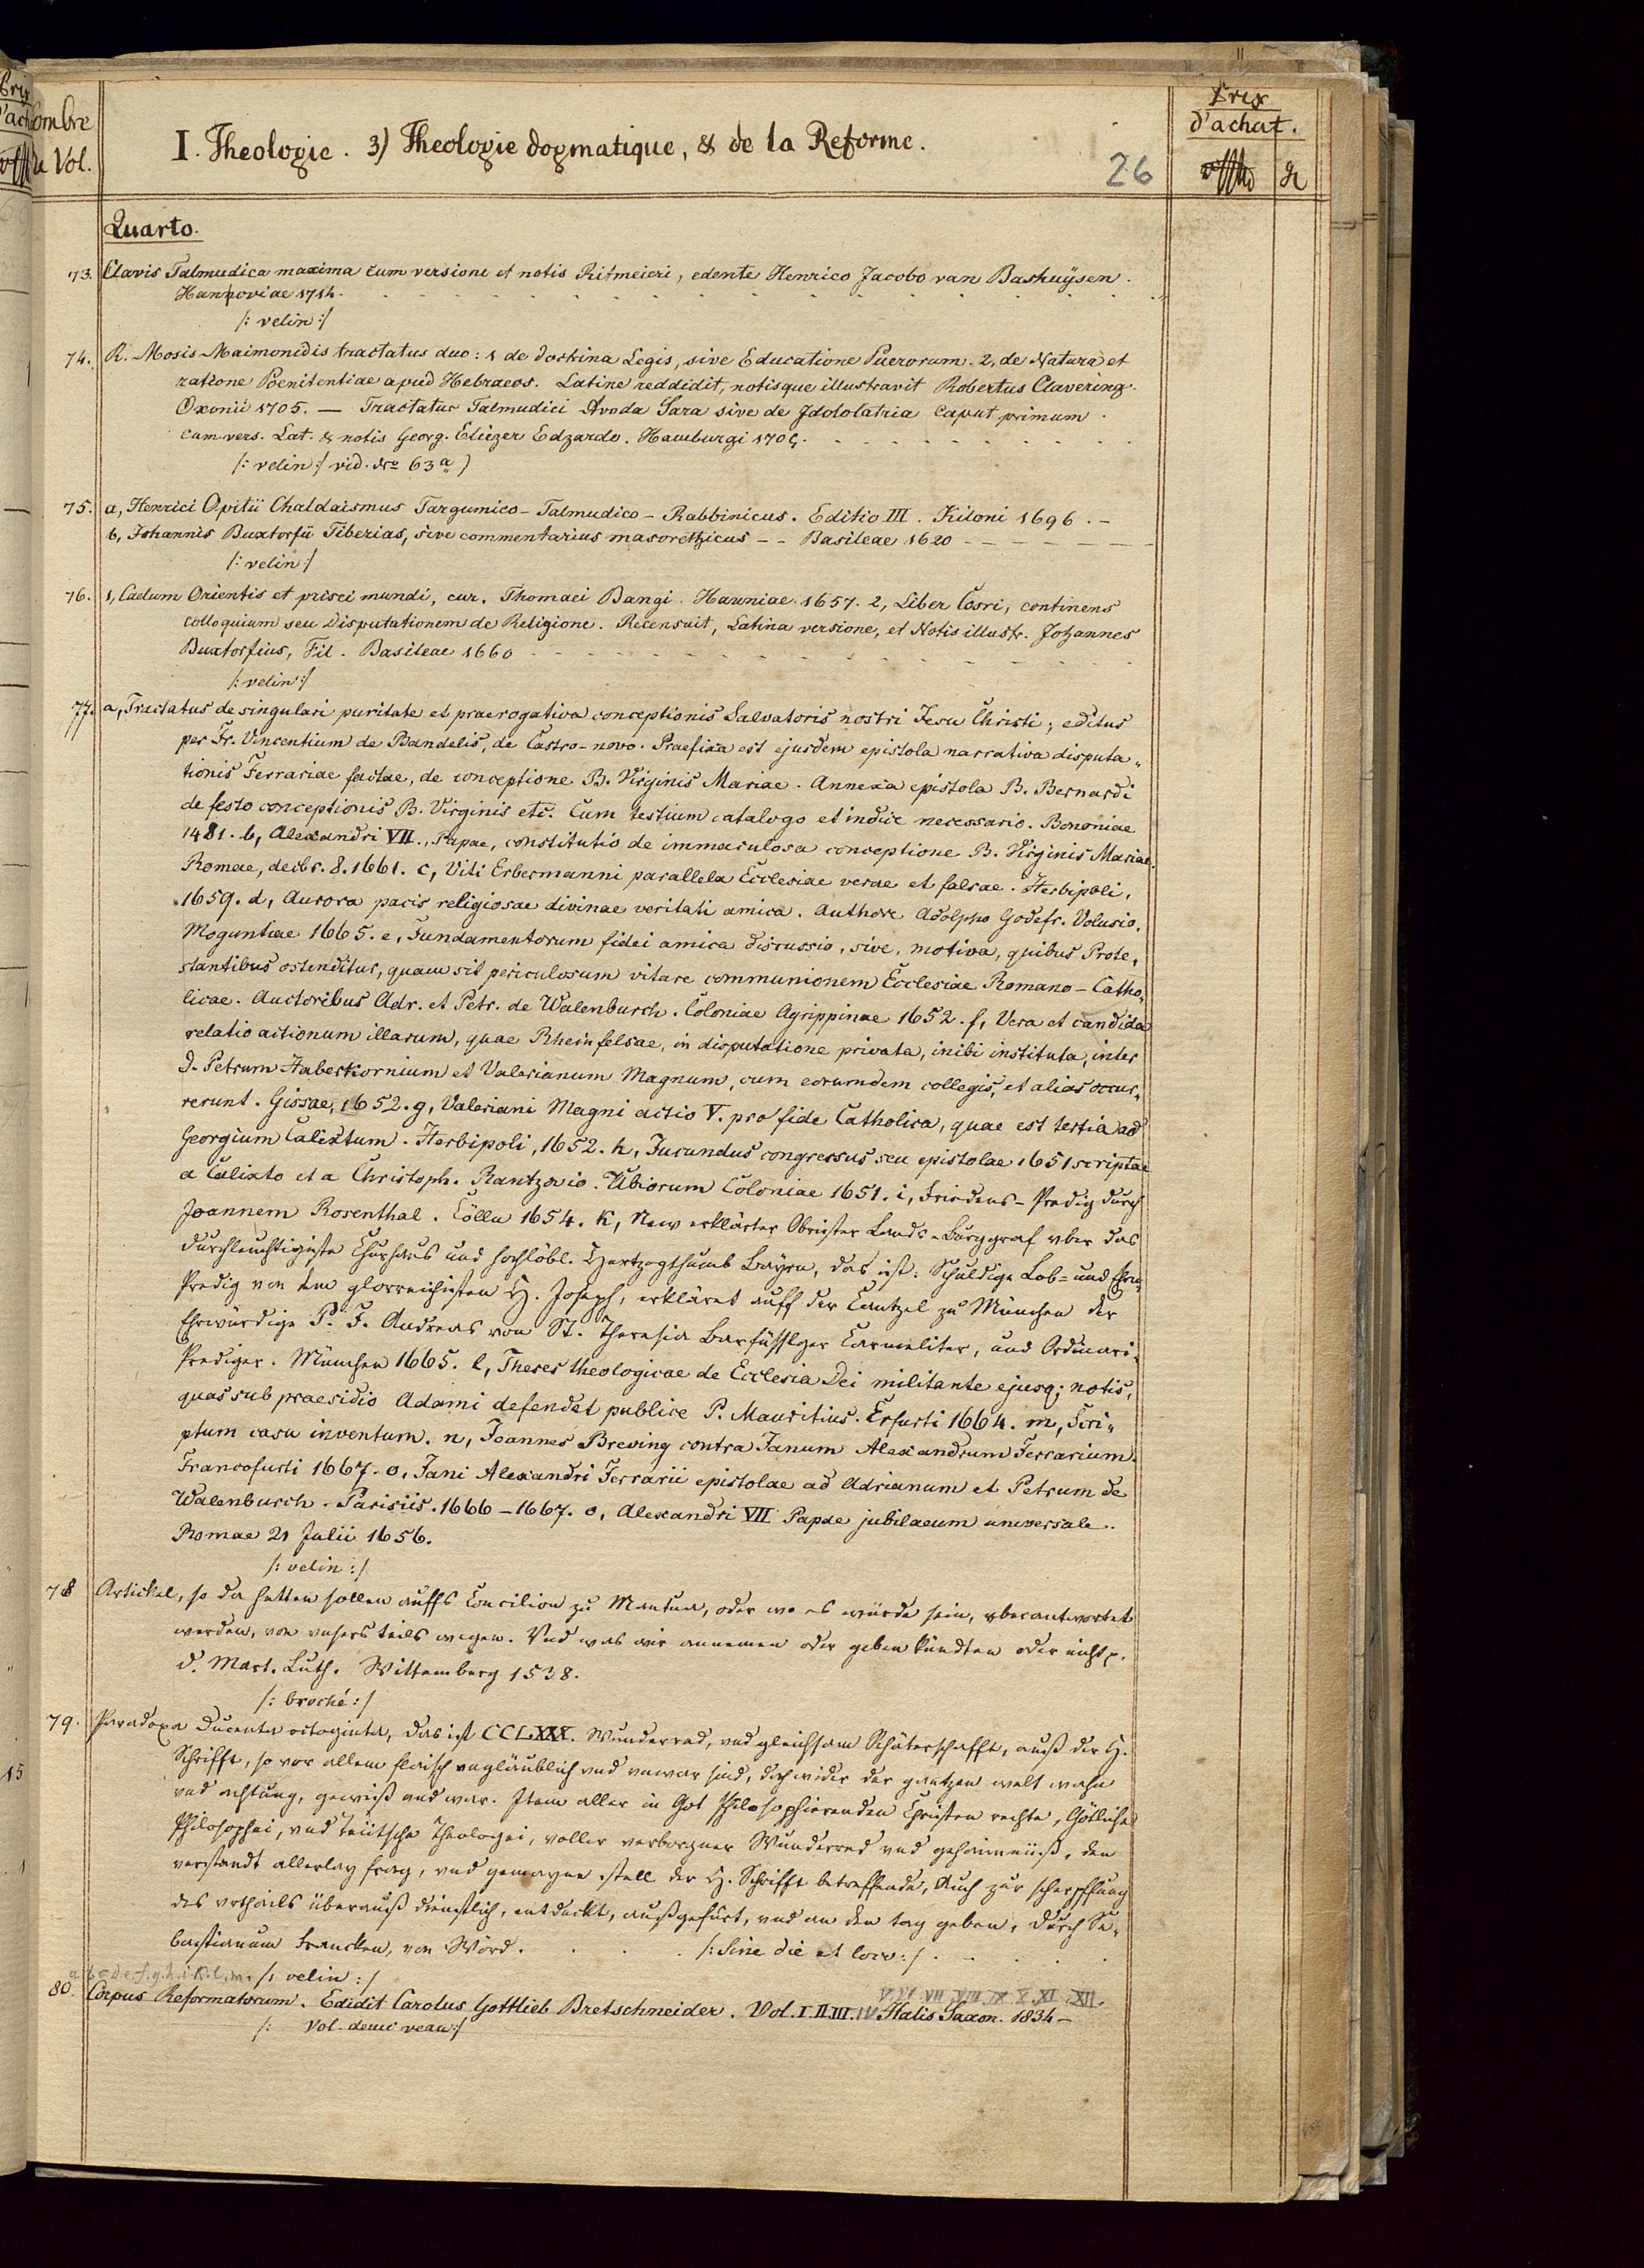 Prix
d'achat.
Nombre
de Vol.
I. Theologie. 3) Theologie dogmatique, & de la Reforme.
26
Quarto.
73. Clavis Talmudica maxima cum versione et notis Ritmeieri, edente Henrico Jacobo van Bashuÿsen.
Hannoviae 1714.
/: velin :/
74. R. Mosis Maimonidis tractatus duo: 1 de doctrina Legis, sive Educatione Puerorum. 2, de Natura et
ratione Poenitentiae apud Hebraeos. Latine reddidit, notisque illustravit Robertus Clavering.
Oxonii 1705. — Tractatus Talmudici Avoda Sara sive de Idololatria Caput primum.
cum vers. Lat. & notis Georg. Eliezer Edzardo. Hamburgi 1705.
/: velin :/ vid. Nro 63 a)
75. a, Henrici Opitii Chaldaismus Targumico-Talmudico-Rabbinicus. Editio III. Kiloni 1696. –
b, Johannis Buxtorfii Tiberias, sive commentarius masorethicus – – Basileae 1620
/: velin :/
76. 1, Caelum Orientis et prisci mundi, cur. Thomaei Bangi. Hauniae. 1657. 2, Liber Cosri, continens
colloquium seu Disputationem de Religione. Recensuit, Latina versione, et Notis illustr. Johannes
Buxtorfius, Fil. Basileae 1660
/: velin :/
77. a, Tractatus de singulari puritate et praerogativa conceptionis Salvatoris nostri Jesu Christi; editus
per Fr. Vincentium de Bandelis, de Castro-novo. Praefixa est ejusdem epistola narrativa disputa„
tionis Ferrariae factae, de conceptione B. Virginis Mariae. Annexa epistola B. Bernardi
de festo conceptionis B. Virginis etc. Cum testium catalogo et indice necessario. Bononiae
1481. b, Alexandri VII., Papae, constitutio de immaculosa conceptione B. Virginis Mariae.
Romae, decbr. 8. 1661. c, Viti Erbermanni parallela Ecclesiae verae et falsae. Herbipoli,
1659. d, Aurora pacis religiosae divinae veritati amica. Authore Adolpho Godefr. Volusio.
Moguntiae 1665. e, Fundamentorum fidei amica discussio, sive, motiva, quibus Prote„
stantibus ostenditur, quam sit periculosum vitare communionem Ecclesiae Romano-Catho„
licae. Auctoribus Adr. et Petr. de Walenburch. Coloniae Agrippinae 1652. f, Vera et candida
relatio actionum illarum, quae Rheinfelsae, in disputatione privata, inibi instituta, inter
D. Petrum Haberkornium et Valerianum Magnum, cum eorumdem collegis, et alias occur„
rerunt. Gissae, 1652. g, Valeriani Magni actio V. pro fide Catholica, quae est tertia ad
Georgium Calixtum. Herbipoli, 1652. h, Jucundus congressus seu epistolae 1651 scriptae
a Calixto et a Christoph. Rantzovio. Ubiorum Coloniae 1651. i, Friedens-Predig durch
Joannem Rosenthal. Cölln 1654. k, New erklärter Obrister Lands-Burggraf vber das
durchleuchtigiste Churhaus und hochlöbl. Hertzogthumb Bayrn, das ist: Schuldige Lob- und Ehrn„
Predig von dem glorreichisten H. Joseph, erkläret auff der Cantzel zu München der
Ehrwürdige P. F. Andreas von St. Theresia Barfüsslger Carmeliter, und Ordinari„
Prediger. München 1665. l, Theses theologicae de Ecclesia Dei militante ejusq; notis,
quas sub praesidio Adami defendet publice P. Mauritius. Erfurti 1664. m, Scri„
ptum casu inventum. n, Joannes Breving contra Janum Alexandrum Ferrarium.
Francofurti 1667. o, Jani Alexandri Ferrarii epistolae ad Adrianum et Petrum de
Walenburch. Parisiis. 1666–1667. o, Alexandri VII Papae jubilaeum universale.
Romae 21 Julii 1656.
/: velin :/
78 Artickel, so da hetten sollen auffs Concilion zu Mantua, oder wo es würde sein, vberantwortet
werden, von vnsers teils wegen. Vnd was wir annemen oder geben kündten oder nicht.
D. Mart. Luth. Wittemberg 1538.
/: broché :/
79. Paradoxa Ducenta octoginta, das ist CCLXXX. Wunderred, vnd gleichsam Rhäterschafft, auß der H.
Schrifft, so vor allem fleisch vngläublich vnd vnwar sind, doch wider der gantzen welt wahn
vnd achtung, gewiß vnd war. Item aller in Got Philosophierenden Christen rechte, Götliche
Philosophei, vnd Teütsche Theologei, voller verborgner Wunderred vnd gehaimnüß, den
verstandt allerlay frag, vnd gemayne stell der H. Schrifft betreffende, Auch zur scherpffung
des vrthails überauß dienstlich, entdeckt, außgefürt, vnd an den tag geben, durch Se„
bastianum Francken, von Wörd. /: Sine die et loco :/
a b c d e. f. g. h. i. k. l. m. /: velin :/
V. VI. VII. VIII. IX. X. XI. XII.
80. Corpus Reformatorum. Edidit Carolus Gottlieb Bretschneider. Vol. I. II. III. IV Halis Saxon. 1834 –
/: Vol. demi veau :/
15